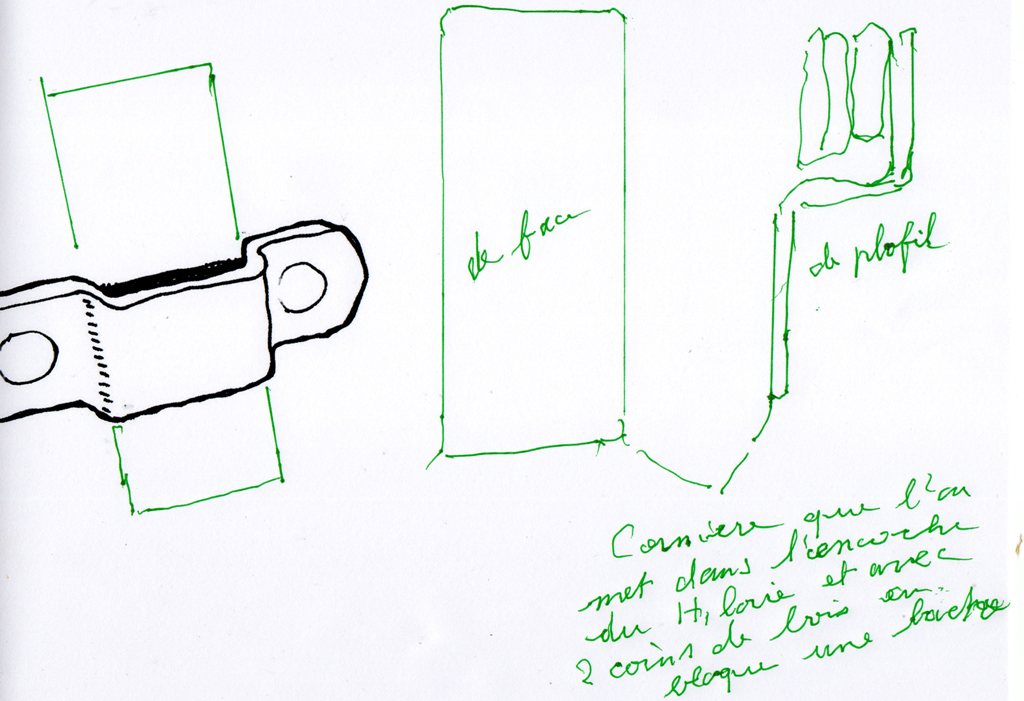 de face
de profil
Cornière que l'on
met dans l'encoche
du H, lorie et avec
2 coins de bois on
bloque une bache